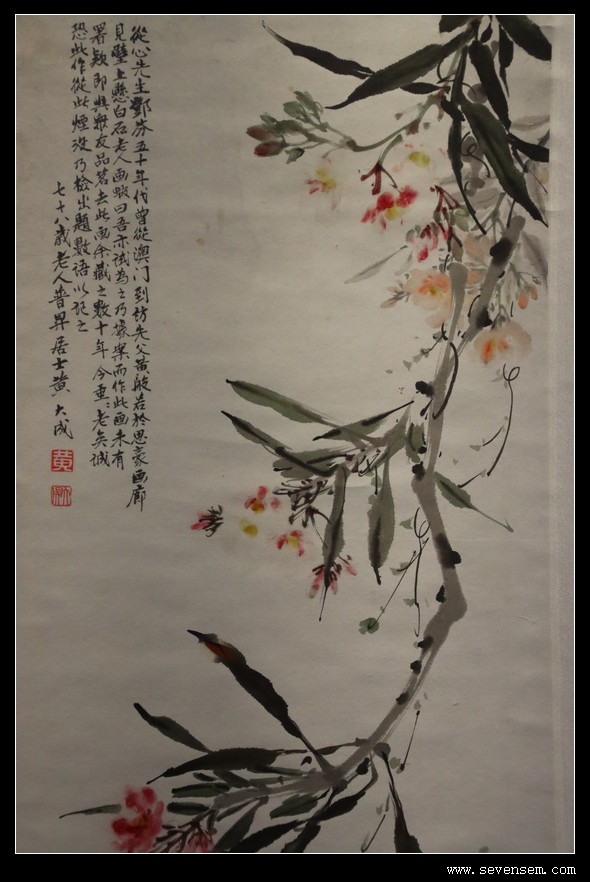 從心先生鄧芬五十年代曾從澳门到訪先父黃般若於思豪画廊
見壁上懸白石老人画蝦曰吾亦試為之乃據案而作此画未有
署欵即與衆友品茗去此画余藏之數十年今垂垂老矣誠
恐此作從此煙没乃檢出題數語以记之
七十八歲老人普昇居士黄大成
黄
www.sevensem.com